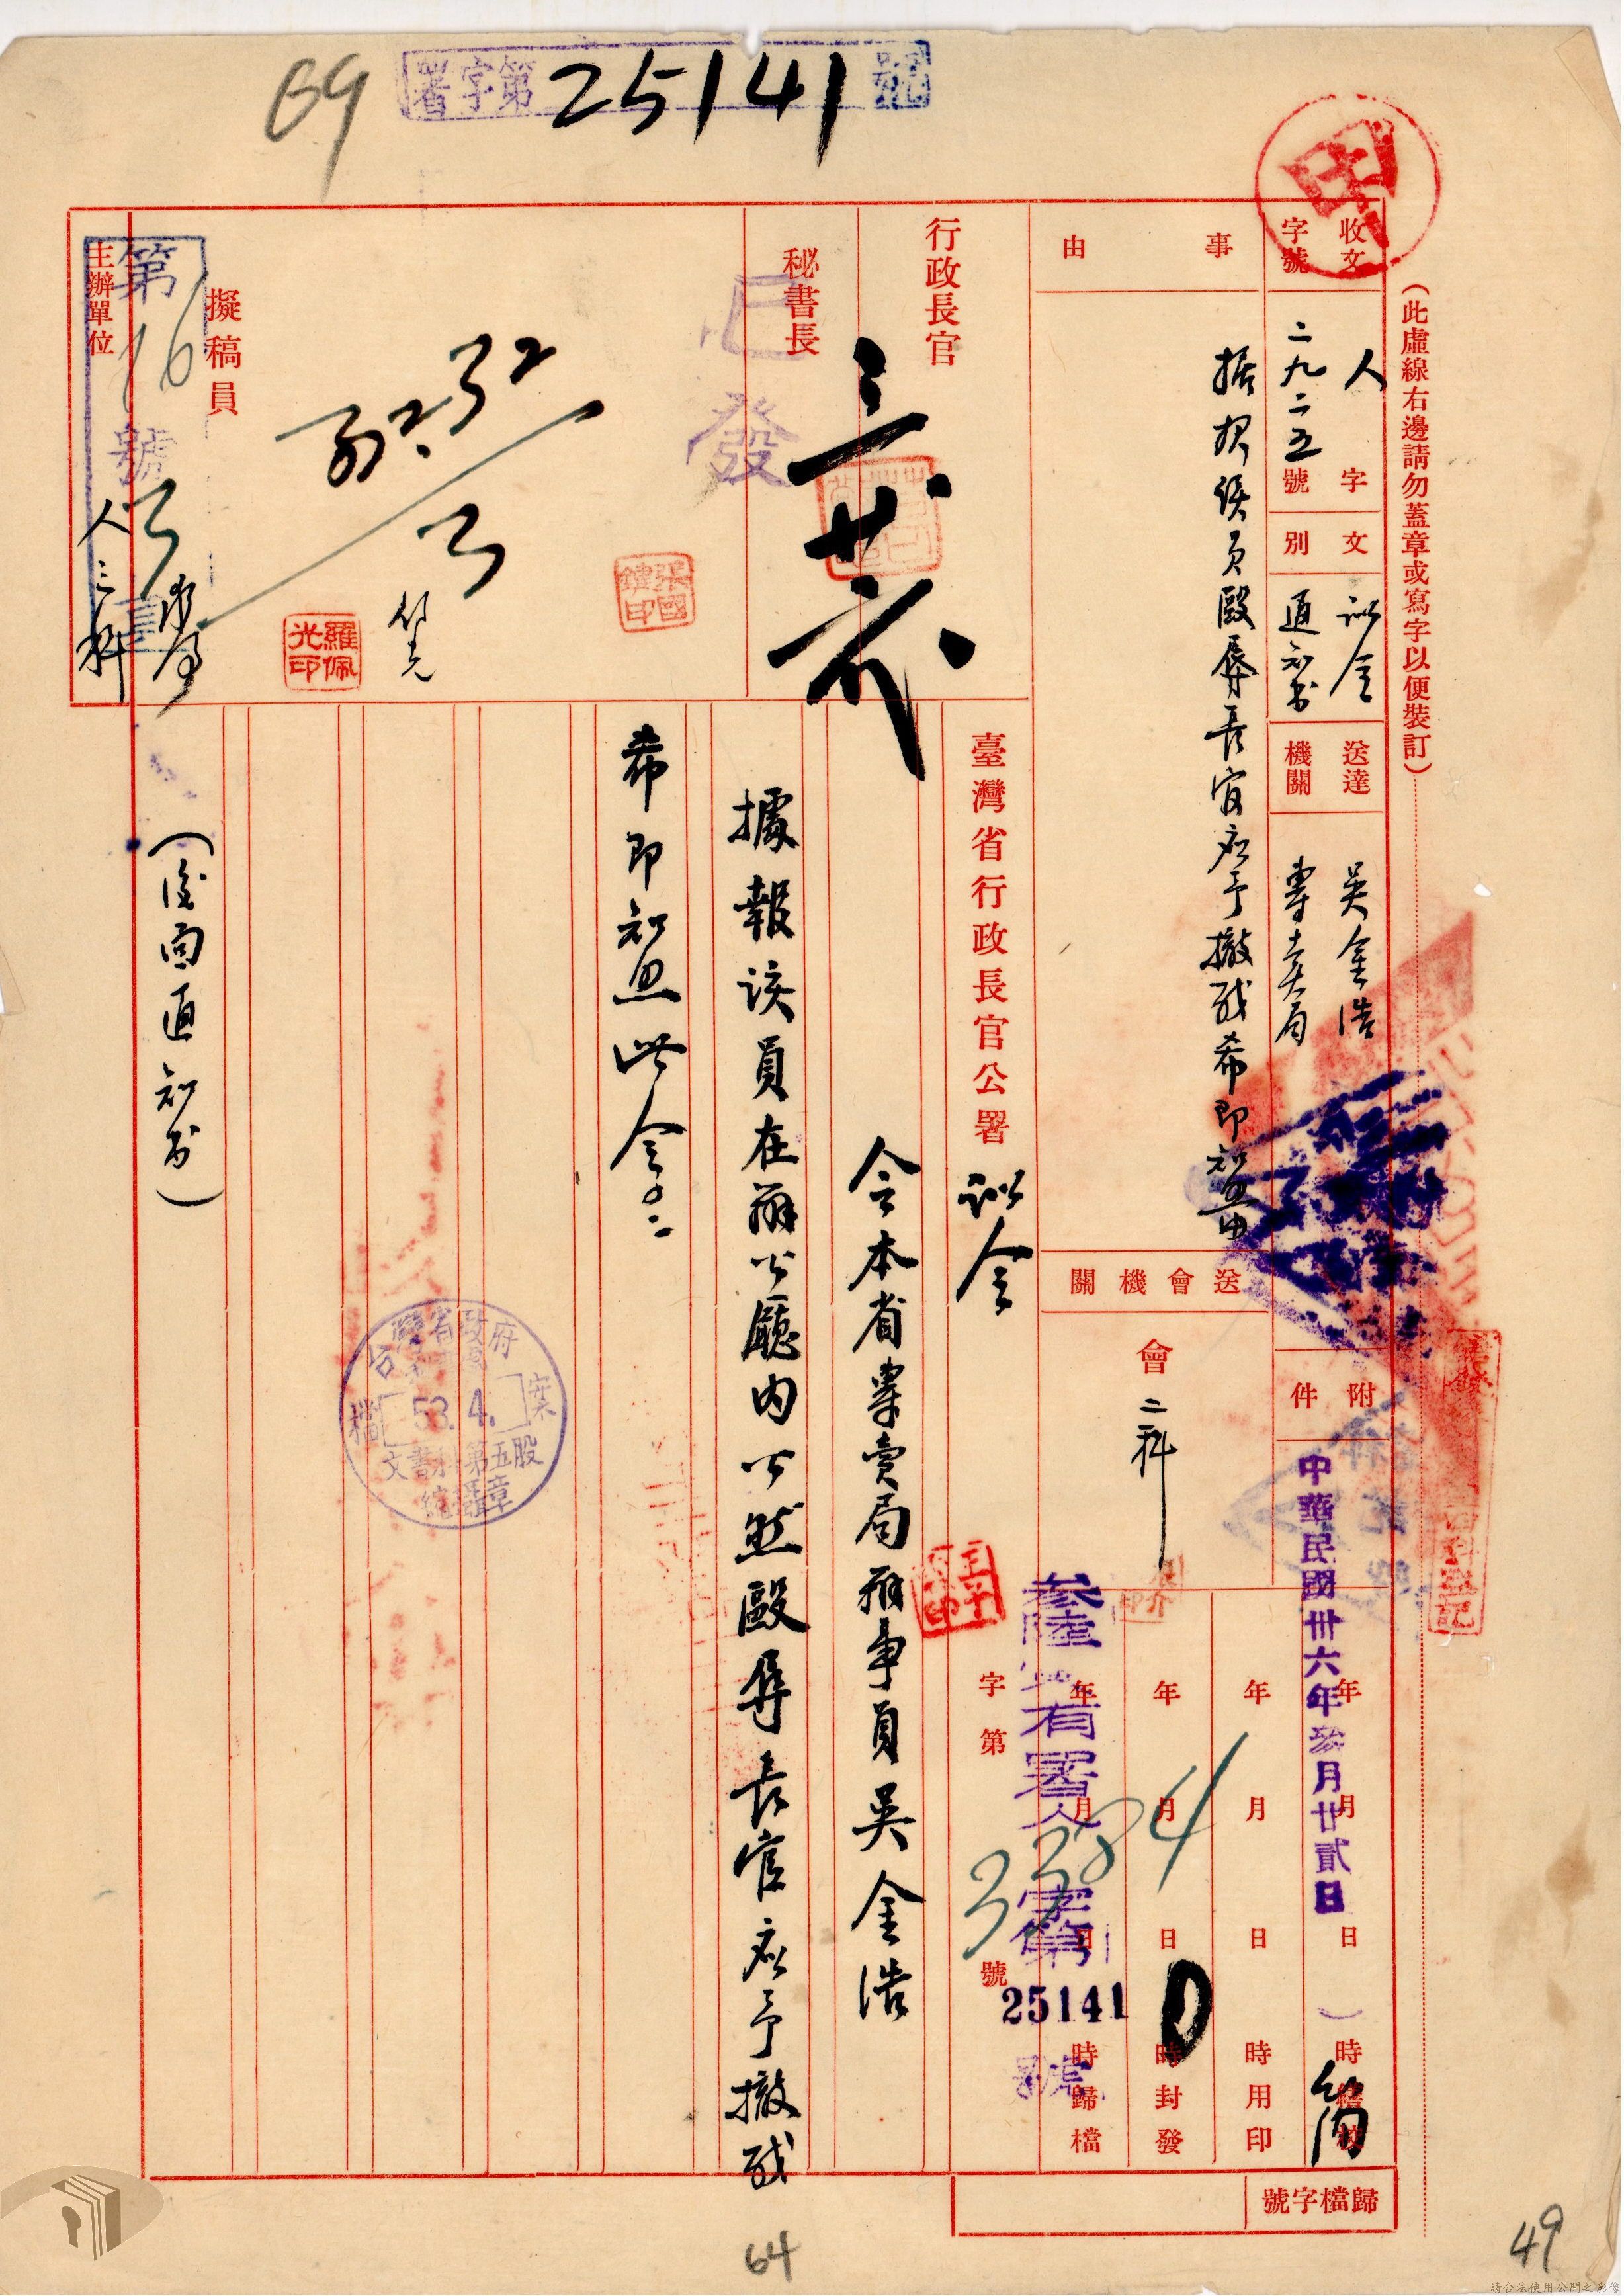 署字第25141號
69
(此虛線右邊請勿蓋章或寫字以便裝訂)
收文字號
人字
二九二五號
文別
訓令
通知書
送達機關
吳金浩
專賣局
附件
中華民國卅六年叁月廿貳日
年月日時
事由
据報該員毆辱長官應予撤職希即知照由
送會機關
會
二科
年月日時用印
年月日時封發
年月日時歸檔
字第號
3384
25141號
行政長官
秘書長
已發
張國鍵印
羅佩光印
擬稿員
主辦單位
第16號
人三科
臺灣省行政長官公署訓令
令本省專賣局辦事員吳金浩
據報該員在辦公廳内公然毆辱長官應予撤職
希即知照此令
(後面通知書)
台灣省政府
檔案
53.4.
文書科第五股
歸檔字號
64
49
請合法使用公開之影像